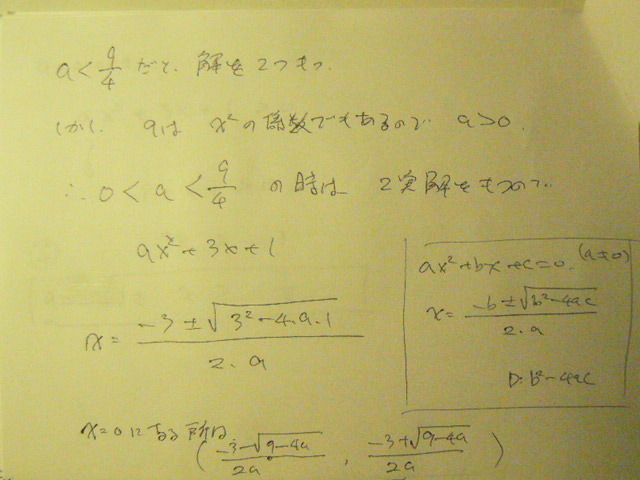 a < 9/4 だと、解を2つもつ。
しかし aは x²の係数でもあるので a>0.
∴ 0 < a < 9/4 の時は 2実解をもつので
ax²+3x+1
x = (-3 ± √(3²-4·a·1)) / (2·a)
ax²+bx+c=0. (a≠0)
x = (-b ± √(b²-4ac)) / (2·a)
D: b²-4ac
x=0になる所は
( (-3-√(9-4a)) / 2a , (-3+√(9-4a)) / 2a )